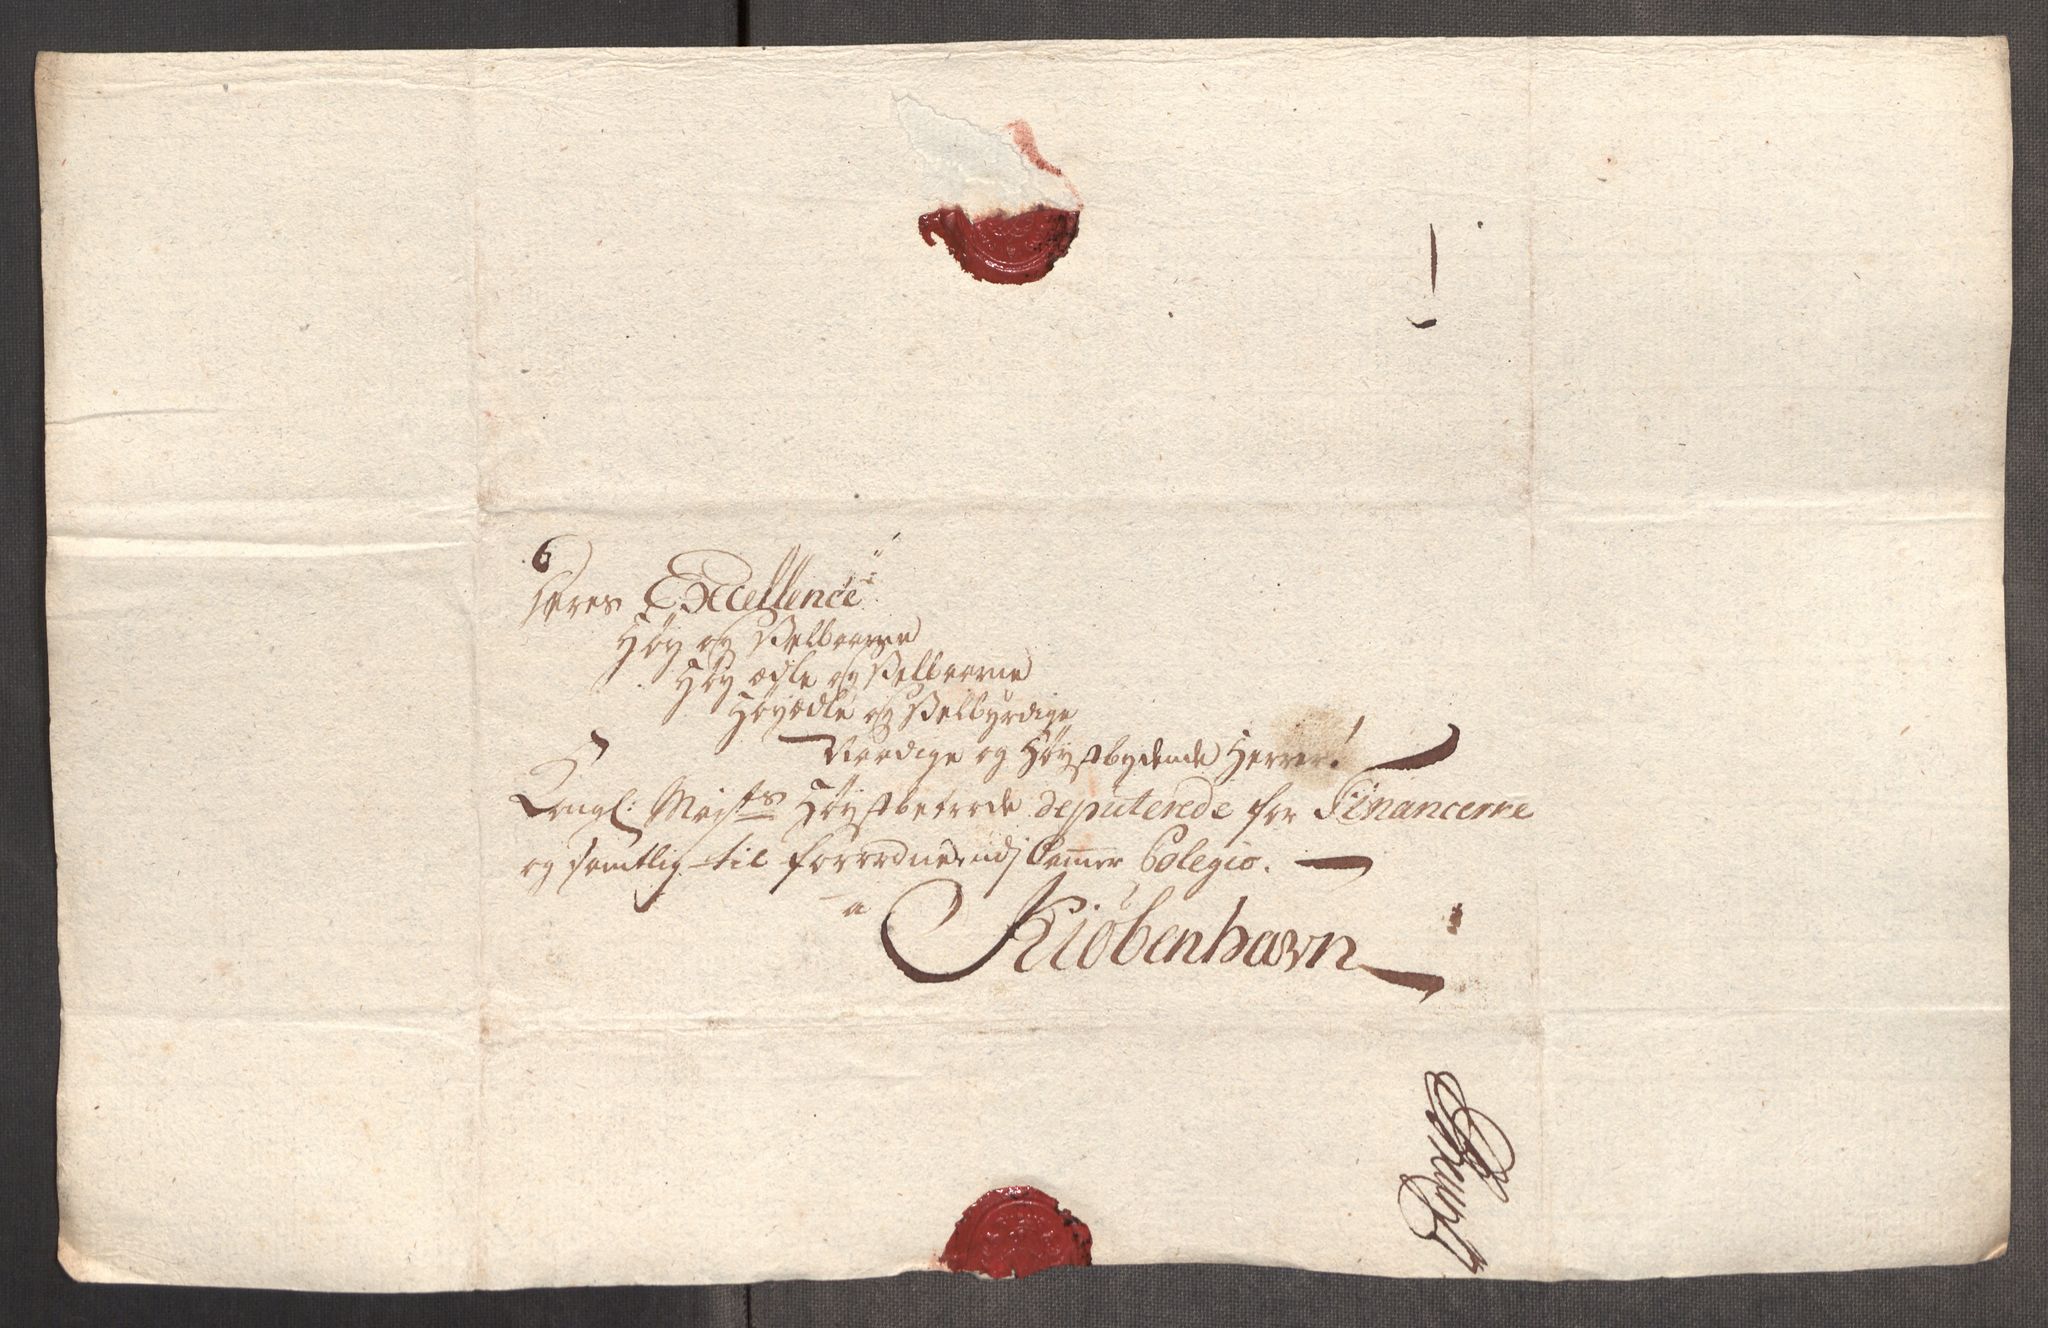 Deres Excellence
Høy og Velbaarne
Høy ædle og Velbaarne
Høyædle og Velbyrdige
Naadige og Høystbydende Herrer!
Kongl: Maj:ts Høystbetrode deputerede for Financerne
og samtlig til forordnede udj Camer Colegio.
a
Kiøbenhavn